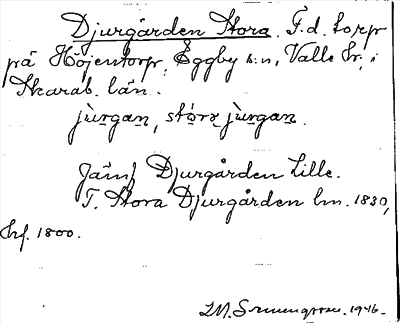 Djurgården Stora. F.d. torp
på Höjentorp, Eggby s:n, Valle hr, i
Skarab. län.
jùrgan, stórɤ jùrgan.
Jämf Djurgården Lilla.
T. Stora Djurgården hm. 1830,
hrf. 1800.
1946.